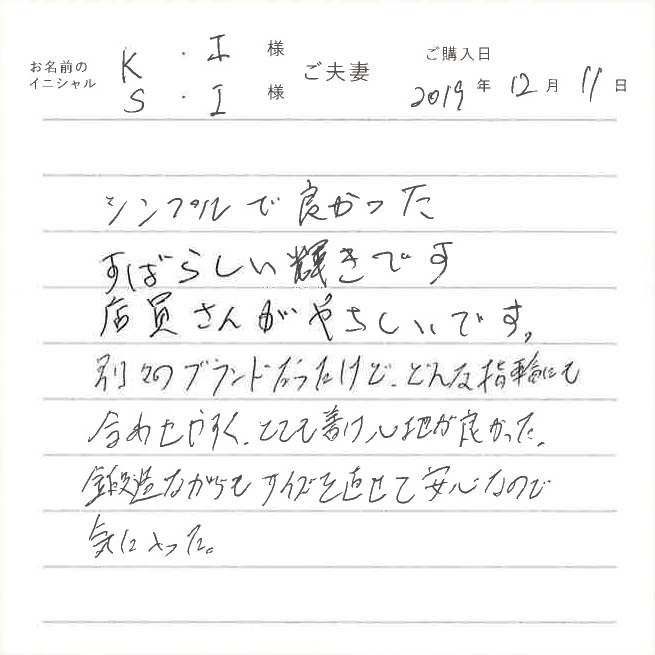 お名前のイニシャル K・I 様 ご夫妻 ご購入日
S・I 様 2019年12月11日
シンプルで良かった
すばらしい輝きです
店員さんがやさしいです。
別々のブランドだったけど、どんな指輪にも
合わせやすく、とても着け心地が良かった。
鍛造ながらもサイズを直せて安心なので
気に入った。